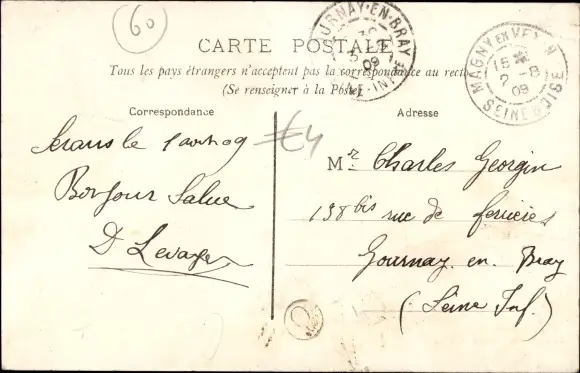 60
CARTE POSTALE
Tous les pays étrangers n'acceptent pas la correspondance au recto
(Se renseigner à la Poste)
GOURNAY-EN-BRAY
09
SEINE-INFRE
MAGNY EN VEXIN
15
2 -8
09
SEINE & OISE
Correspondance
le 1 août 09
Bonjour Salue
D Levag
€4
Adresse
Mr. Charles Georgin
138 bis rue de
Gournay. en. Bray
(Seine Inf.)